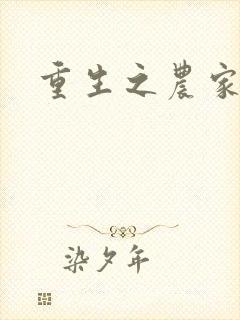 重生之農家
染夕年